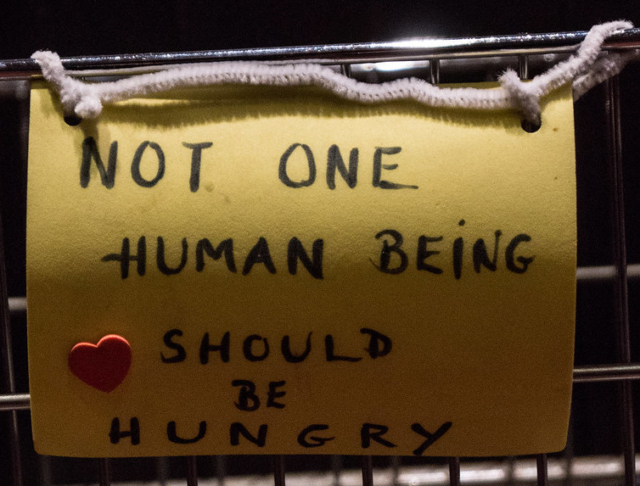 NOT ONE
HUMAN BEiNG
SHOULD
BE
HUNGRY